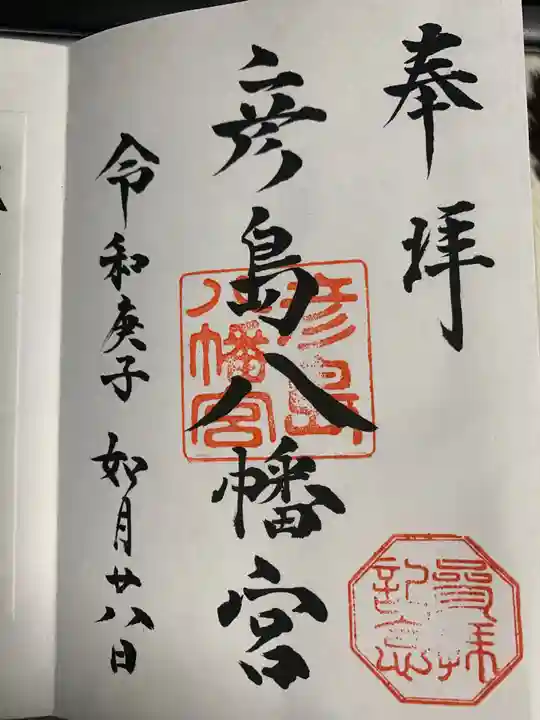 奉拝
彦島八幡宮
彦島八幡宮
参拝記念
令和庚子 如月廿八日